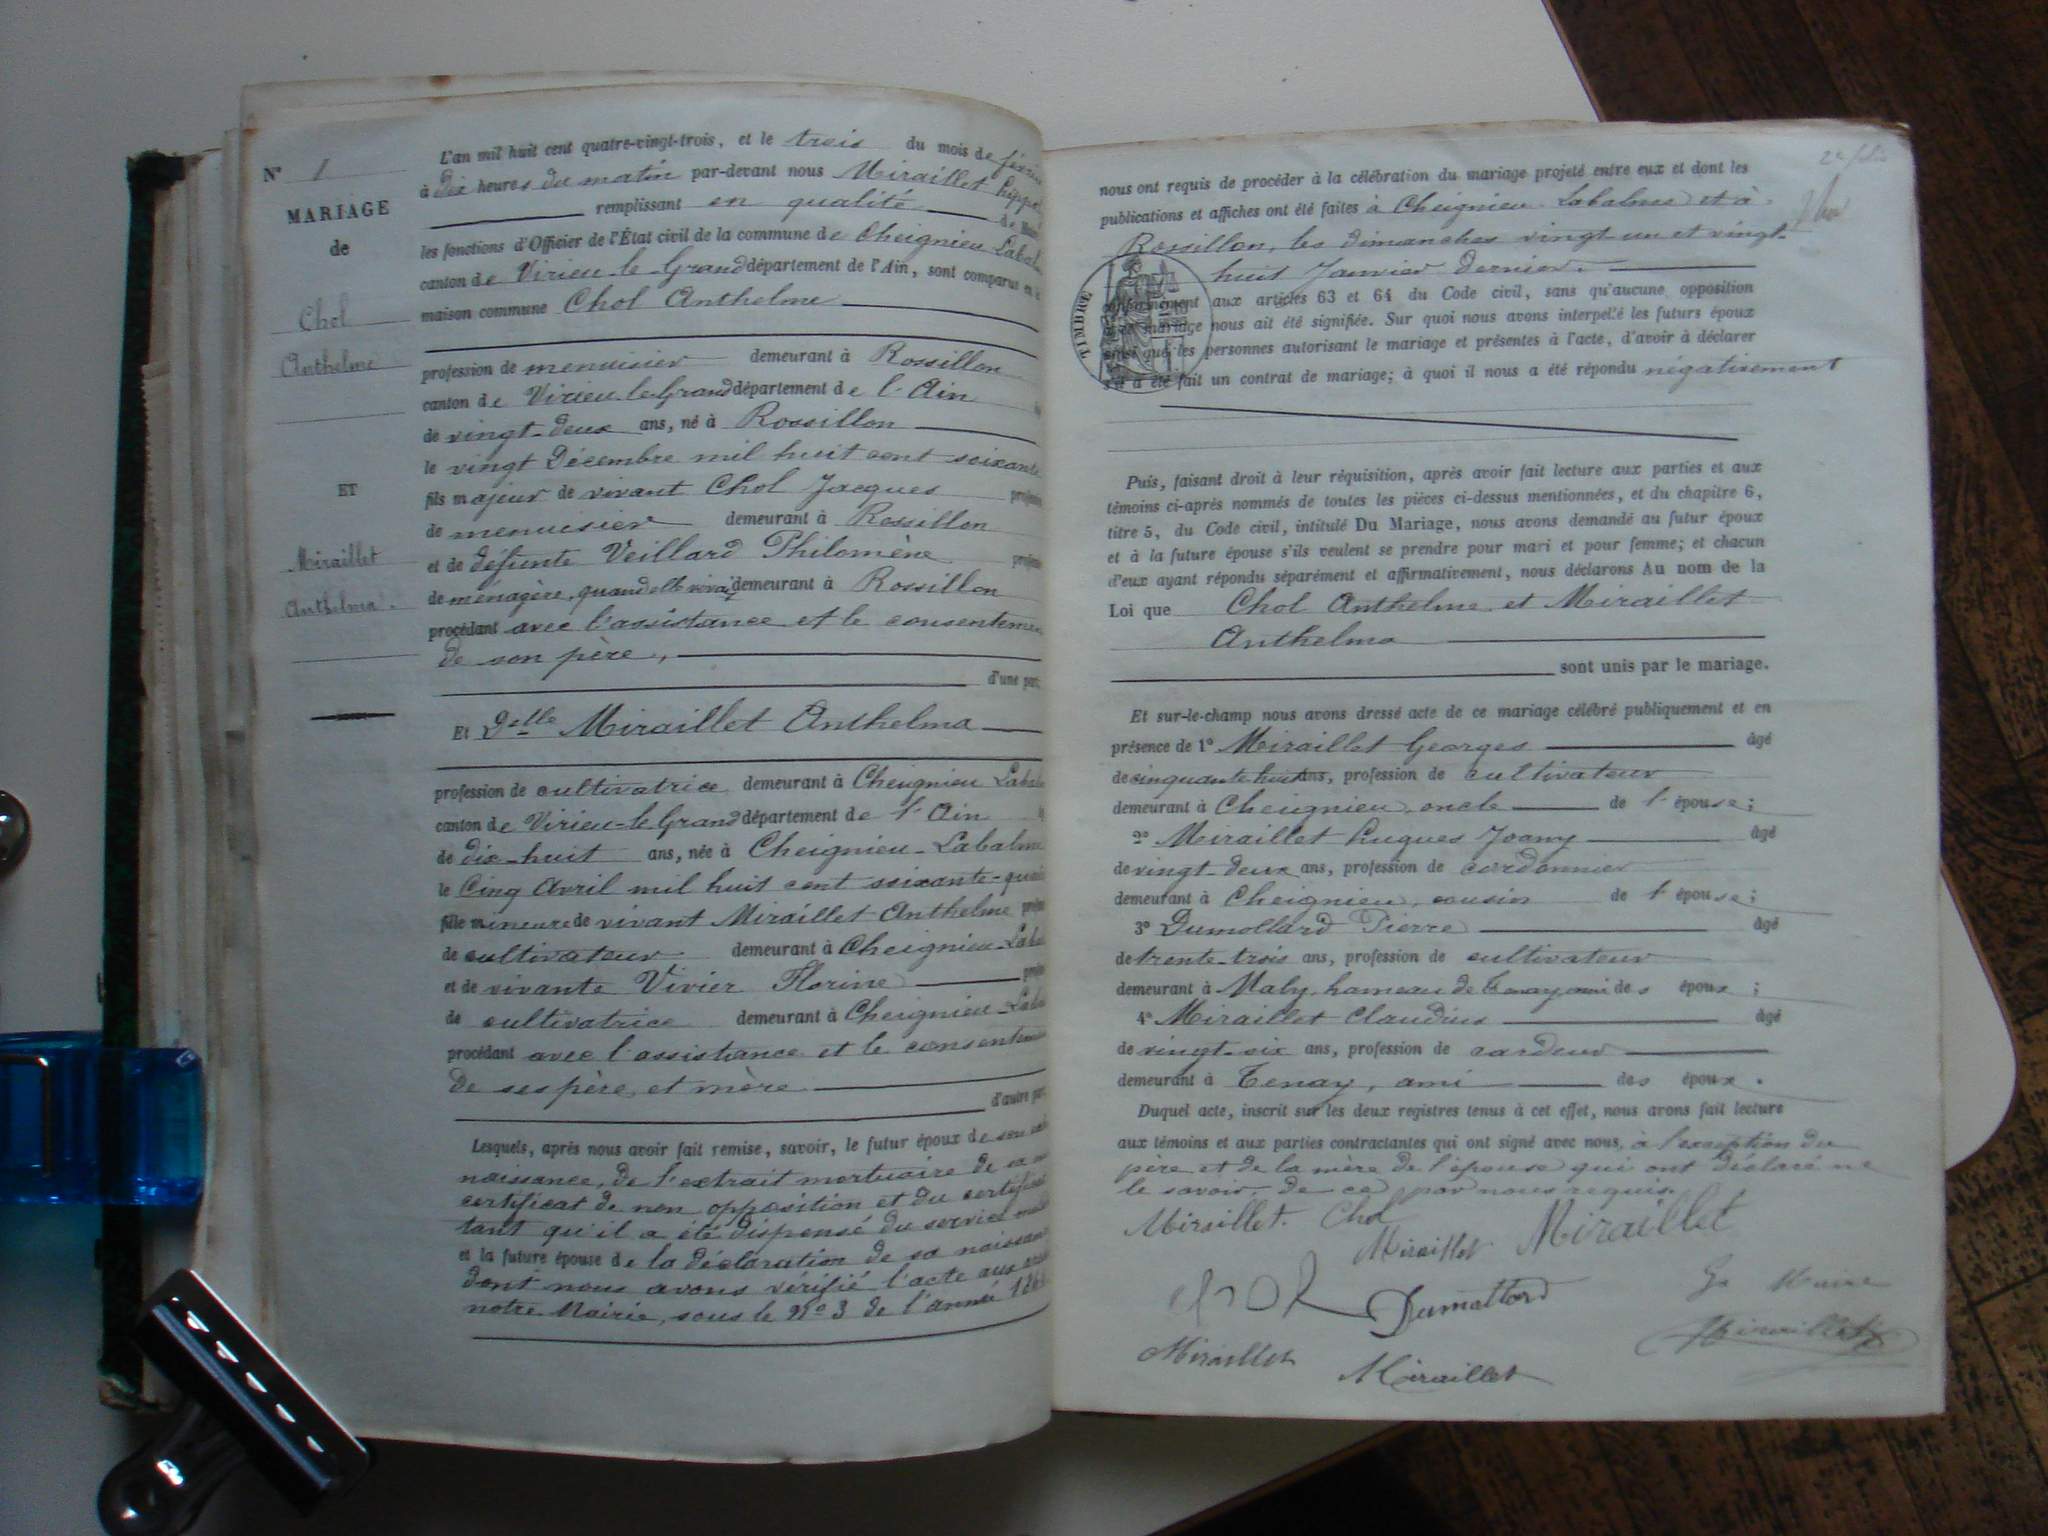 N° 1
MARIAGE
de
Chol
Anthelme
ET
Miraillet
Anthelma.
L'an mil huit cent quatre-vingt-trois, et le trois du mois de
à dix heures du matin par-devant nous Miraillet
remplissant en qualité de
les fonctions d'Officier de l'État civil de la commune de Cheignieu-
canton de Virieu-le-Grand département de l'Ain, sont comparus en
maison commune Chol Anthelme
profession de menuisier demeurant à Rossillon
canton de Virieu-le-Grand département de l'Ain
de vingt-deux ans, né à Rossillon
le vingt Décembre mil huit cent soixante
fils majeur de vivant Chol Jacques
de menuisier demeurant à Rossillon
et de défunte Veillard Philomène
de ménagère, quand elle vivait demeurant à Rossillon
procédant avec l'assistance et le
de son père,
d'une part,
Et Delle Miraillet Anthelma
profession de cultivatrice demeurant à Cheignieu
canton de Virieu-le-Grand département de l'Ain
de dix-huit ans, née à Cheignieu-Labalme
le Cinq Avril mil huit cent
fille mineure de vivant Miraillet Anthelme
de cultivateur demeurant à Cheignieu-
et de vivante Vivier Florine
de cultivatrice demeurant à Cheignieu-
procédant avec l'assistance et le
de ses père et mère
d'autre
Lesquels, après nous avoir fait remise, savoir, le futur époux de son
naissance, de l'extrait mortuaire de sa
certificat de non opposition et du
tant qu'il a été dispensé du service
et la future épouse de la déclaration de sa
dont nous avons vérifié l'acte aux
notre Mairie, sous le N° 3 de l'année
2e folio
nous ont requis de procéder à la célébration du mariage projeté entre eux et dont les
publications et affiches ont été faites à Cheignieu-Labalme et à
Rossillon, les dimanches vingt-un et vingt-
huit Janvier dernier.
TIMBRE
conformément aux articles 63 et 64 du Code civil, sans qu'aucune opposition
mariage nous ait été signifiée. Sur quoi nous avons interpellé les futurs époux
ainsi que les personnes autorisant le mariage et présentes à l'acte, d'avoir à déclarer
s'il a été fait un contrat de mariage; à quoi il nous a été répondu négativement
Puis, faisant droit à leur réquisition, après avoir fait lecture aux parties et aux
témoins ci-après nommés de toutes les pièces ci-dessus mentionnées, et du chapitre 6,
titre 5, du Code civil, intitulé Du Mariage, nous avons demandé au futur époux
et à la future épouse s'ils veulent se prendre pour mari et pour femme; et chacun
d'eux ayant répondu séparément et affirmativement, nous déclarons Au nom de la
Loi que Chol Anthelme et Miraillet
Anthelma
sont unis par le mariage.
Et sur-le-champ nous avons dressé acte de ce mariage célébré publiquement et en
présence de 1° Miraillet Georges âgé
de cinquante-huit ans, profession de cultivateur
demeurant à Cheignieu, oncle de l'épouse;
2° Miraillet Hugues Joany âgé
de vingt-deux ans, profession de cordonnier
demeurant à Cheignieu, cousin de l'épouse;
3° Dumollard Pierre âgé
de trente-trois ans, profession de cultivateur
demeurant à Maly, hameau de Tenay, ami des époux;
4° Miraillet Claudius âgé
de vingt-six ans, profession de cardeur
demeurant à Tenay, ami des époux.
Duquel acte, inscrit sur les deux registres tenus à cet effet, nous avons fait lecture
aux témoins et aux parties contractantes qui ont signé avec nous, à l'exception du
père et de la mère de l'épouse qui ont déclaré ne
le savoir, de ce par nous requis.
Miraillet. Chol
Miraillet Miraillet
Chol Dumollard Le Maire
Miraillet Miraillet Miraillet